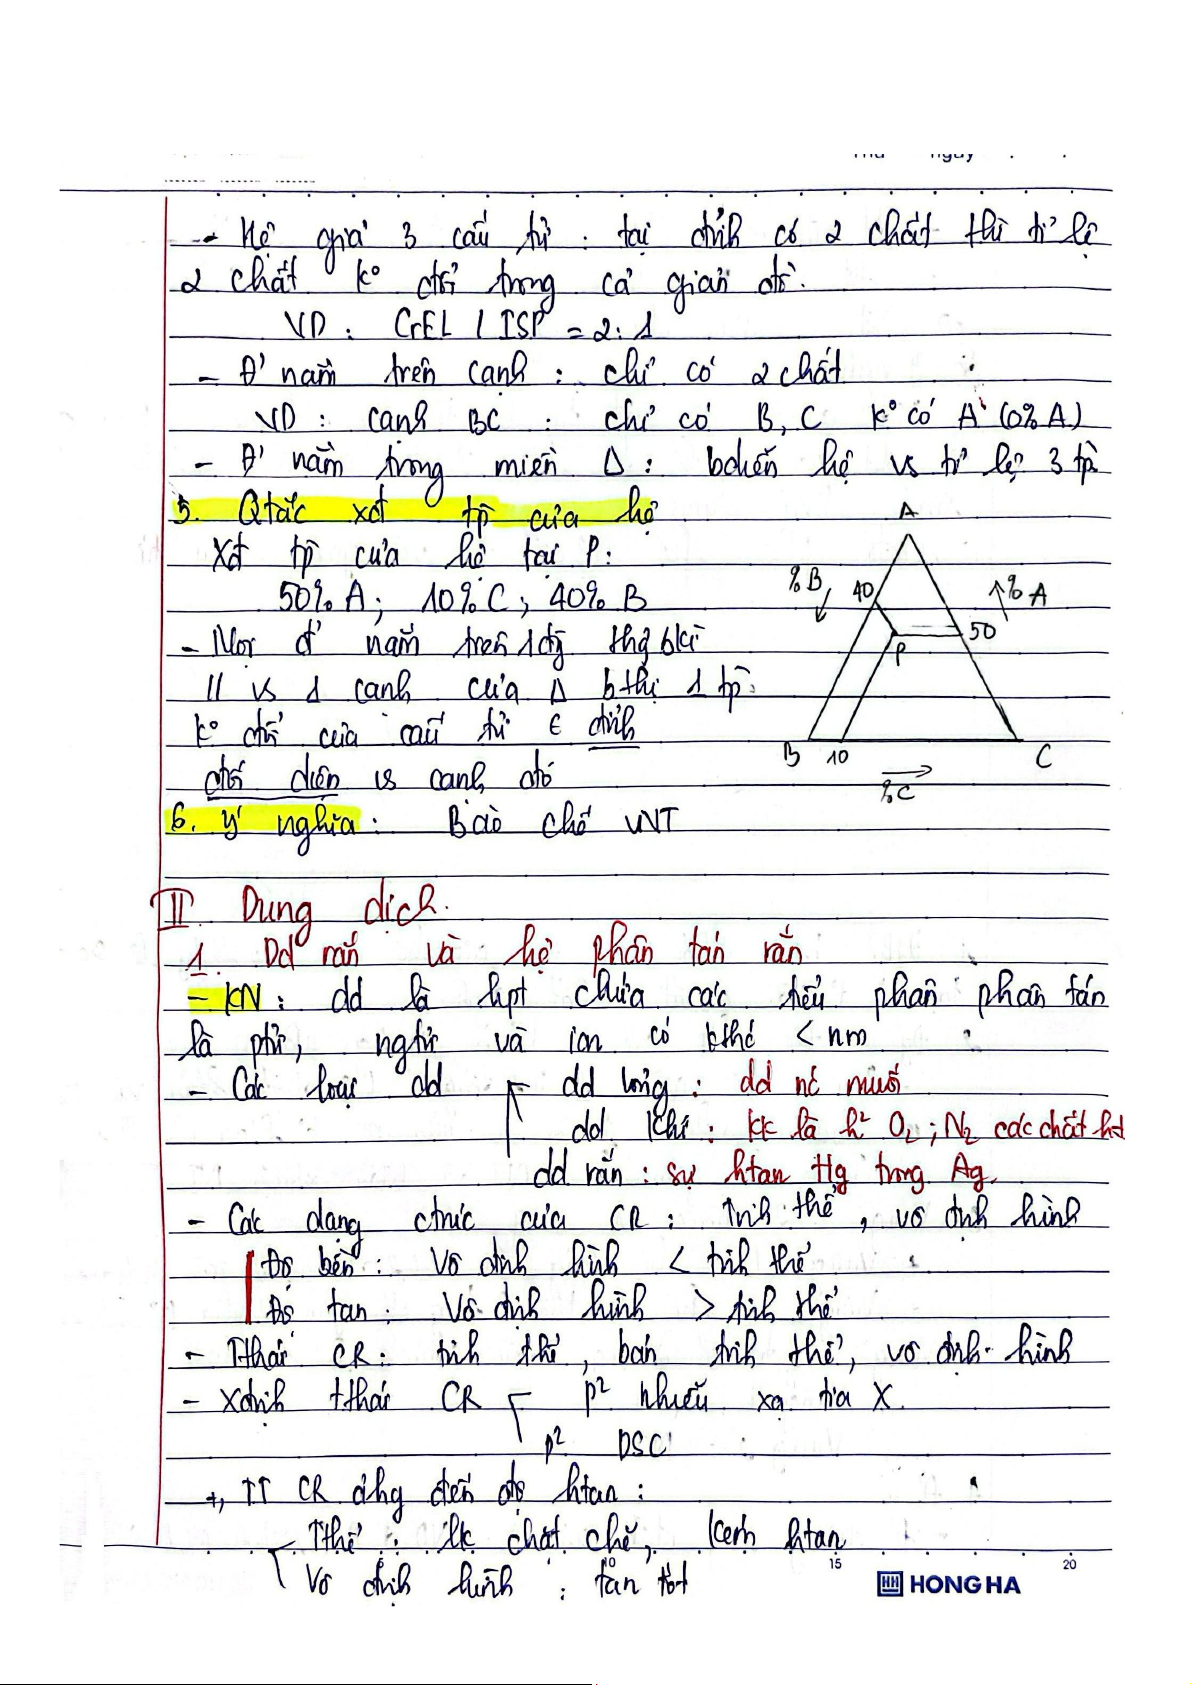 - Hệ giả 3 cấu tử : tại đỉnh có 2 chất thì tỉ lệ
2 chất k° đổi trong cả giản đồ.
VD : CrEL / ISP = 2:1
- Đ' nằm trên cạnh : chỉ có 2 chất
VD : cạnh BC : chỉ có B, C k° có A (0% A)
- Đ' nằm trong miền Δ : bdiễn hệ vs tỉ lệ 3 tp
5. Qtắc xđ tp của hệ
Xđ tp của hệ tại P :
50% A ; 10% C ; 40% B
- Mọi đ' nằm trên 1 đg thg bkì
// vs 1 cạnh của Δ bthị 1 tp
k° đổi của cấu tử ∈ đỉnh
đối diện vs cạnh đó
A
%B
40
%A
50
P
B 10 C
%C
6. Ý nghĩa : Bào chế VNT
II. Dung dịch.
1. Dd rắn và hệ phân tán rắn
- KN : dd là hpt chứa các tiểu phân phân tán
là ptử, ngtử và ion có kthc < nm
- Các loại dd dd lỏng : dd nc muối
dd khí : kk là h² O2 ; N2 các chất
dd rắn : sự htan Hg trong Ag.
- Các dạng ctrúc của CR : Tinh thể, vô định hình
Độ bền : Vô định hình < tinh thể
Độ tan : Vô định hình > tinh thể
- Tthái CR : tinh thể, bán tinh thể, vô định hình
- Xđịnh tthái CR p² nhiễu xạ tia X.
p² DSC
+, TT CR ảhg đến độ htan :
Tthể : lk chặt chẽ, kém htan
Vô định hình : tan tốt
10 15 20
HONG HA